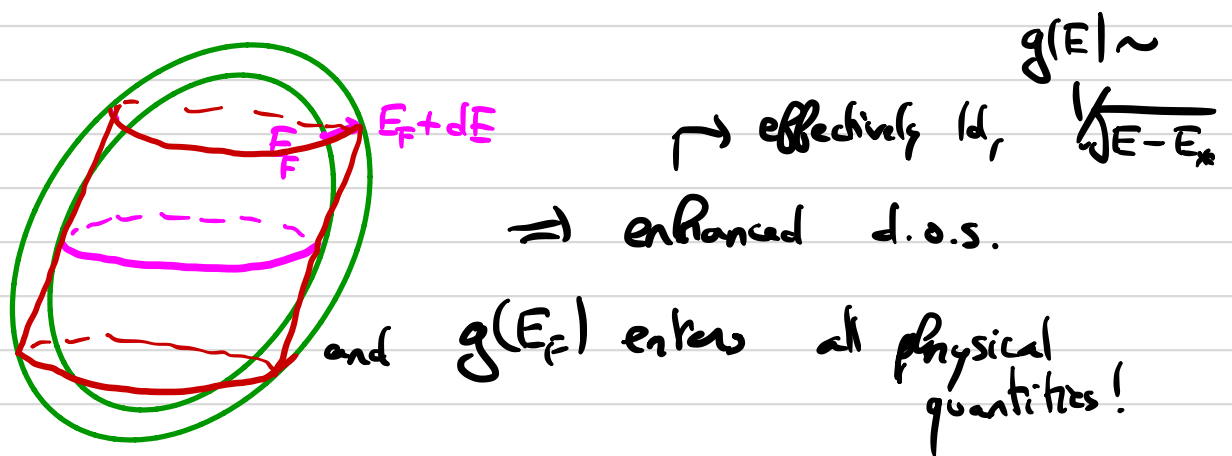 g(E) ~
E_F E_F + dE ↱ effectively 1d, 1/√(E - E_*)
⇒ enhanced d.o.s.
and g(E_F) enters all physical
quantities!